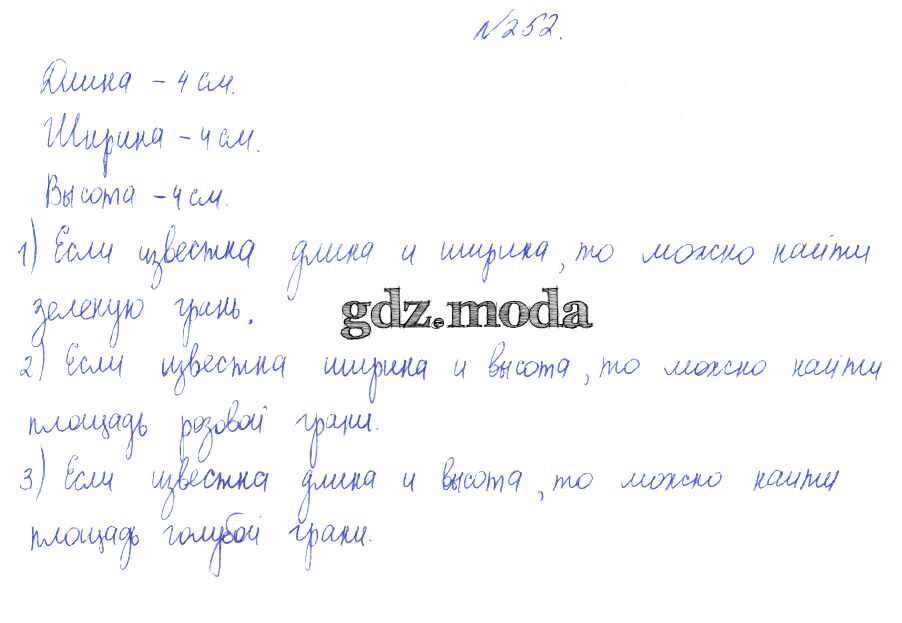 №252.
Длина – 4 см.
Ширина – 4 см.
Высота – 4 см.
1) Если известна длина и ширина, то можно найти
зеленую грань.
gdz.moda
2) Если известна ширина и высота, то можно найти
площадь розовой грани.
3) Если известна длина и высота, то можно найти
площадь голубой грани.